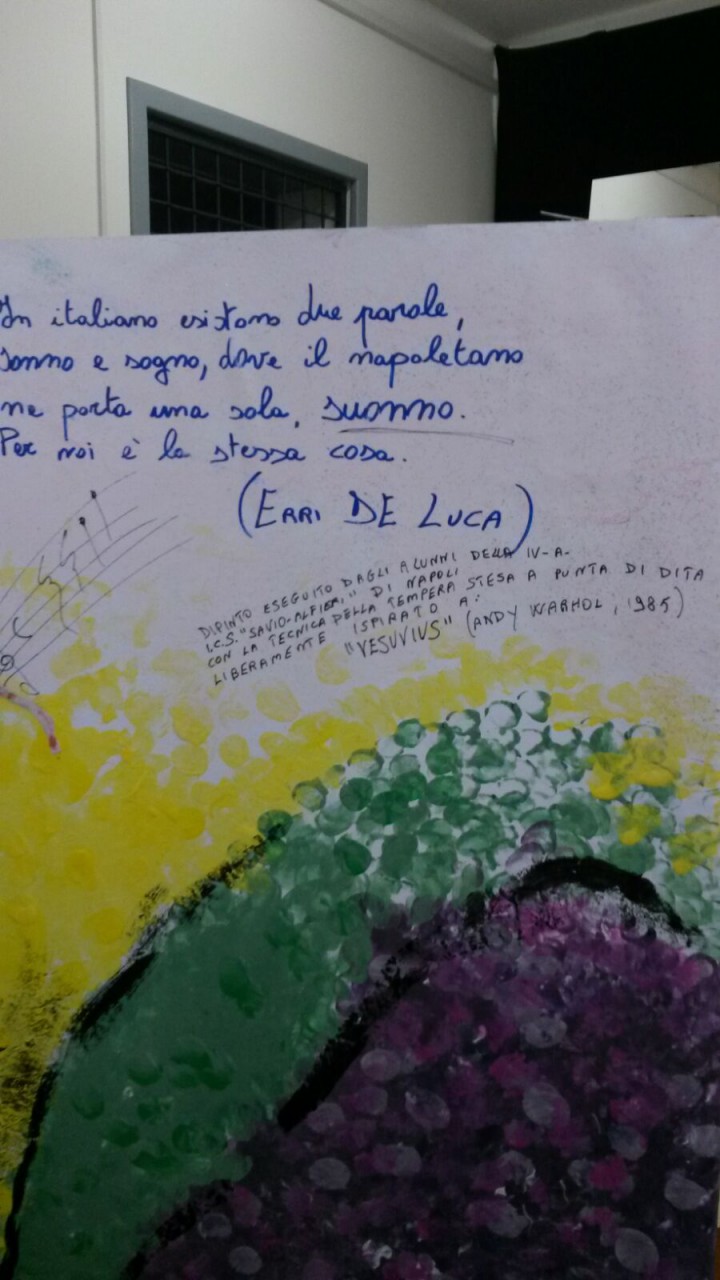 In italiano esistono due parole,
sonno e sogno, dove il napoletano
ne porta una sola, suonno.
Per noi è la stessa cosa.
(ERRI DE LUCA)
DIPINTO ESEGUITO DAGLI ALUNNI DELLA IV-A-
I.C.S. "SAVIO-ALFIERI" DI NAPOLI
CON LA TECNICA DELLA TEMPERA STESA A PUNTA DI DITA
LIBERAMENTE ISPIRATO A:
"VESUVIUS" (ANDY WARHOL, 1985)